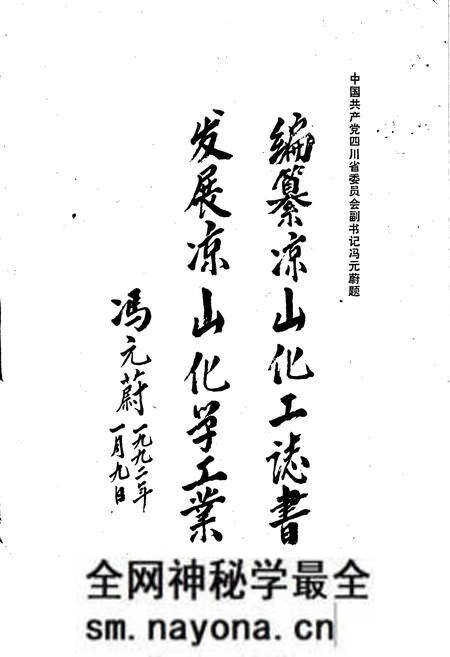 中国共产党四川省委员会副书记冯元蔚题
编纂凉山化工誌書
发展凉山化学工業
冯元蔚
一九九二年
一月九日
全网神秘学最全
sm.nayona.cn